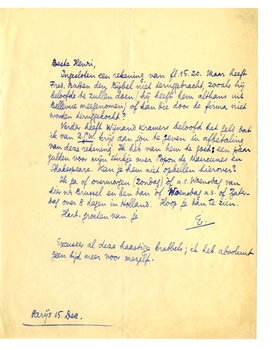 Beste Henri,
Ingesloten een rekening van fl. 15.20. Maar heeft
Fred. Batten den Bijbel niet teruggebracht, zooals hij
beloofde te zullen doen? (hij heeft hem althans uit
Bellevue meegenomen) of kan die door de firma niet
worden teruggekocht?
Verder heeft Wijnand Kramers beloofd het geld dat
ik van D.G.W. krijg aan jou te geven in afbetaling
van deze rekening. Ik heb van hem te goed: een paar
gulden voor mijn stukje over Pogon, de Mancunes en
Shakespeare. Kan je hem niet opbellen hierover?
Ik ga of overmorgen (Zondag) of a.s. Woensdag van
hier n/r Brussel en ben dan of Woensdag a.s. of Zater-
dag over 8 dagen in Holland. Hoop je dan te zien.
Hart. groeten van je
E.
Excuseer al deze haastige krabbels; ik heb absoluut
geen tijd meer voor mezelf.
Parijs 15 Dec.